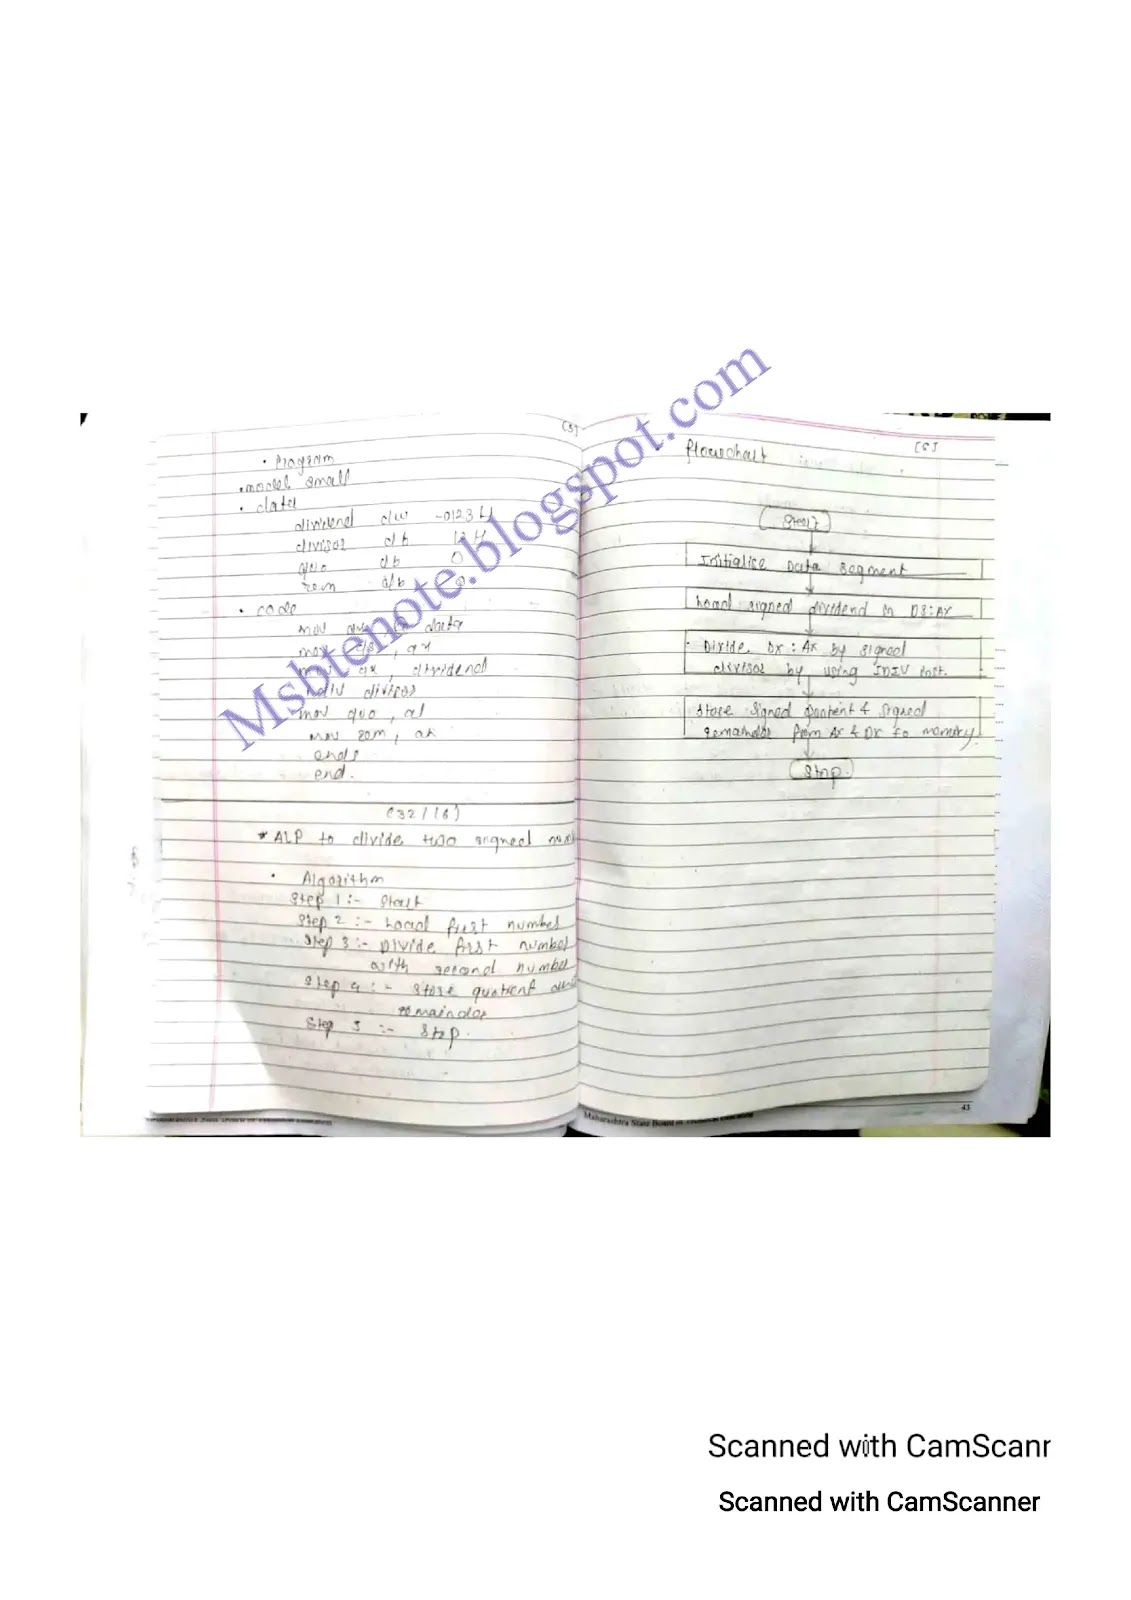 (5)
• Program
.model small
. data
dividend dw -0123H
divisor db 12H
quo db 0
rem db 0
. code
mov data
mov ds, ax
mov ax, dividend
divisor
mov quo, al
mov rem, ah
ends
end.
(32/16)
* ALP to divide two signed
• Algorithm
Step 1 :- Start
Step 2 :- Load first number
Step 3 :- Divide first number
with second number
Step 4 :- Store quotient
remainder
Step 5 :- Stop.
[6]
flowchart
Start
Initialise Data Segment
Load signed dividend in DS:AX
Divide DX : AX by signed
divisor by using IDIV inst.
Store Signed Quotent & Signed
remainder from AX & DX to memory
Stop.
Maharashtra State Board of Technical Education
43
Msbtenote.blogspot.com
Scanned with CamScanr
Scanned with CamScanner